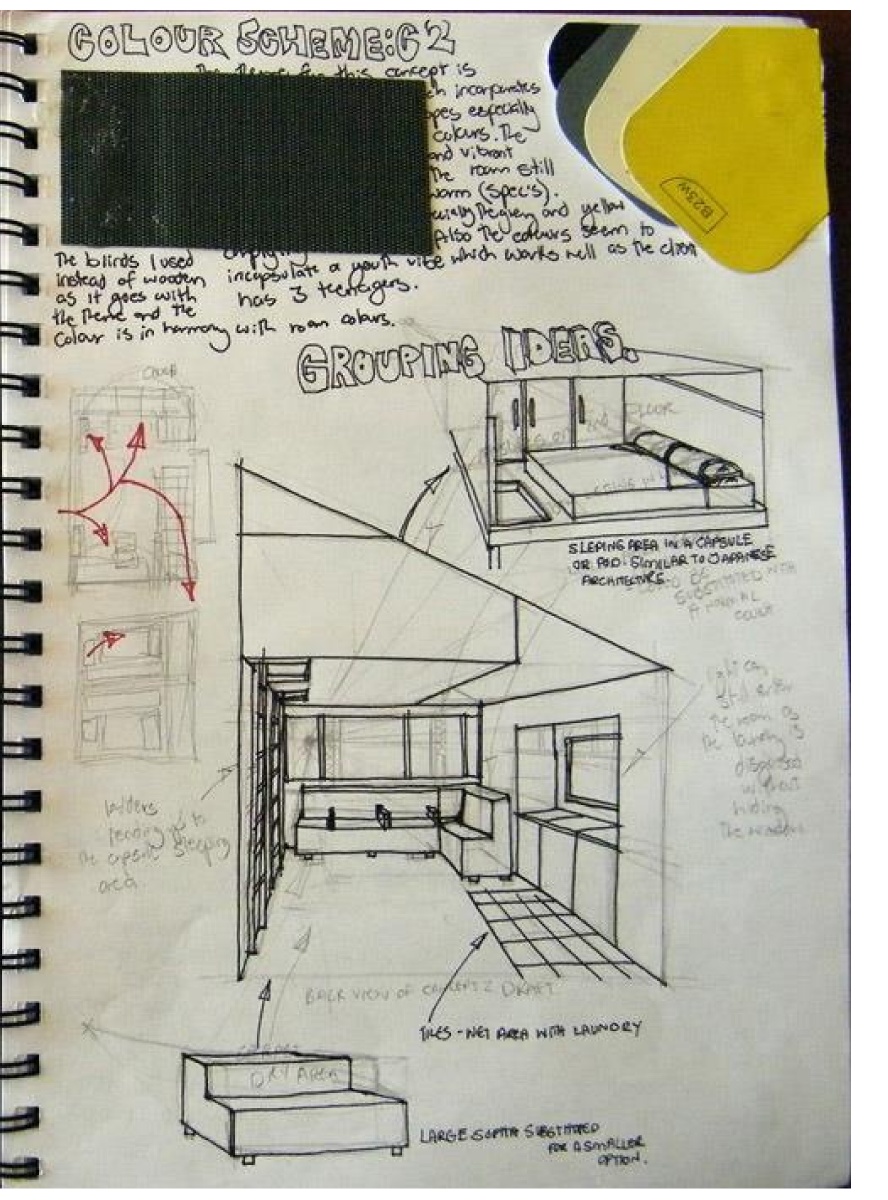 COLOUR SCHEME: C2
The theme for this concept is
incorporates
especially
colours. The
and vibrant
The room still
(Spec's).
The grey and yellow
Also the colours seem to
The blinds I used
incapsulate a youth vibe which works well as the client
instead of wooden
has 3 teenagers.
as it goes with
the theme and the
colour is in harmony with room colours.
B23W
GROUPING IDEAS.
COUCH
FLOOR
SLEPING AREA IN A CAPSULE
OR POD. SIMILAR TO JAPANESE
ARCHITECTURE.
COULD BE
SUBSTITUTED WITH
A NORMAL
COUCH
light can
still enter
the room as
the laundry is
without
hiding
the window
ladders
leading up to
the capsule sleeping
area.
BACK VIEW OF CONCEPT 2 DRAFT
TILES - WET AREA WITH LAUNDRY
DRY AREA
LARGE SOFTA SUBSTITUTED
FOR A SMALLER
OPTION.